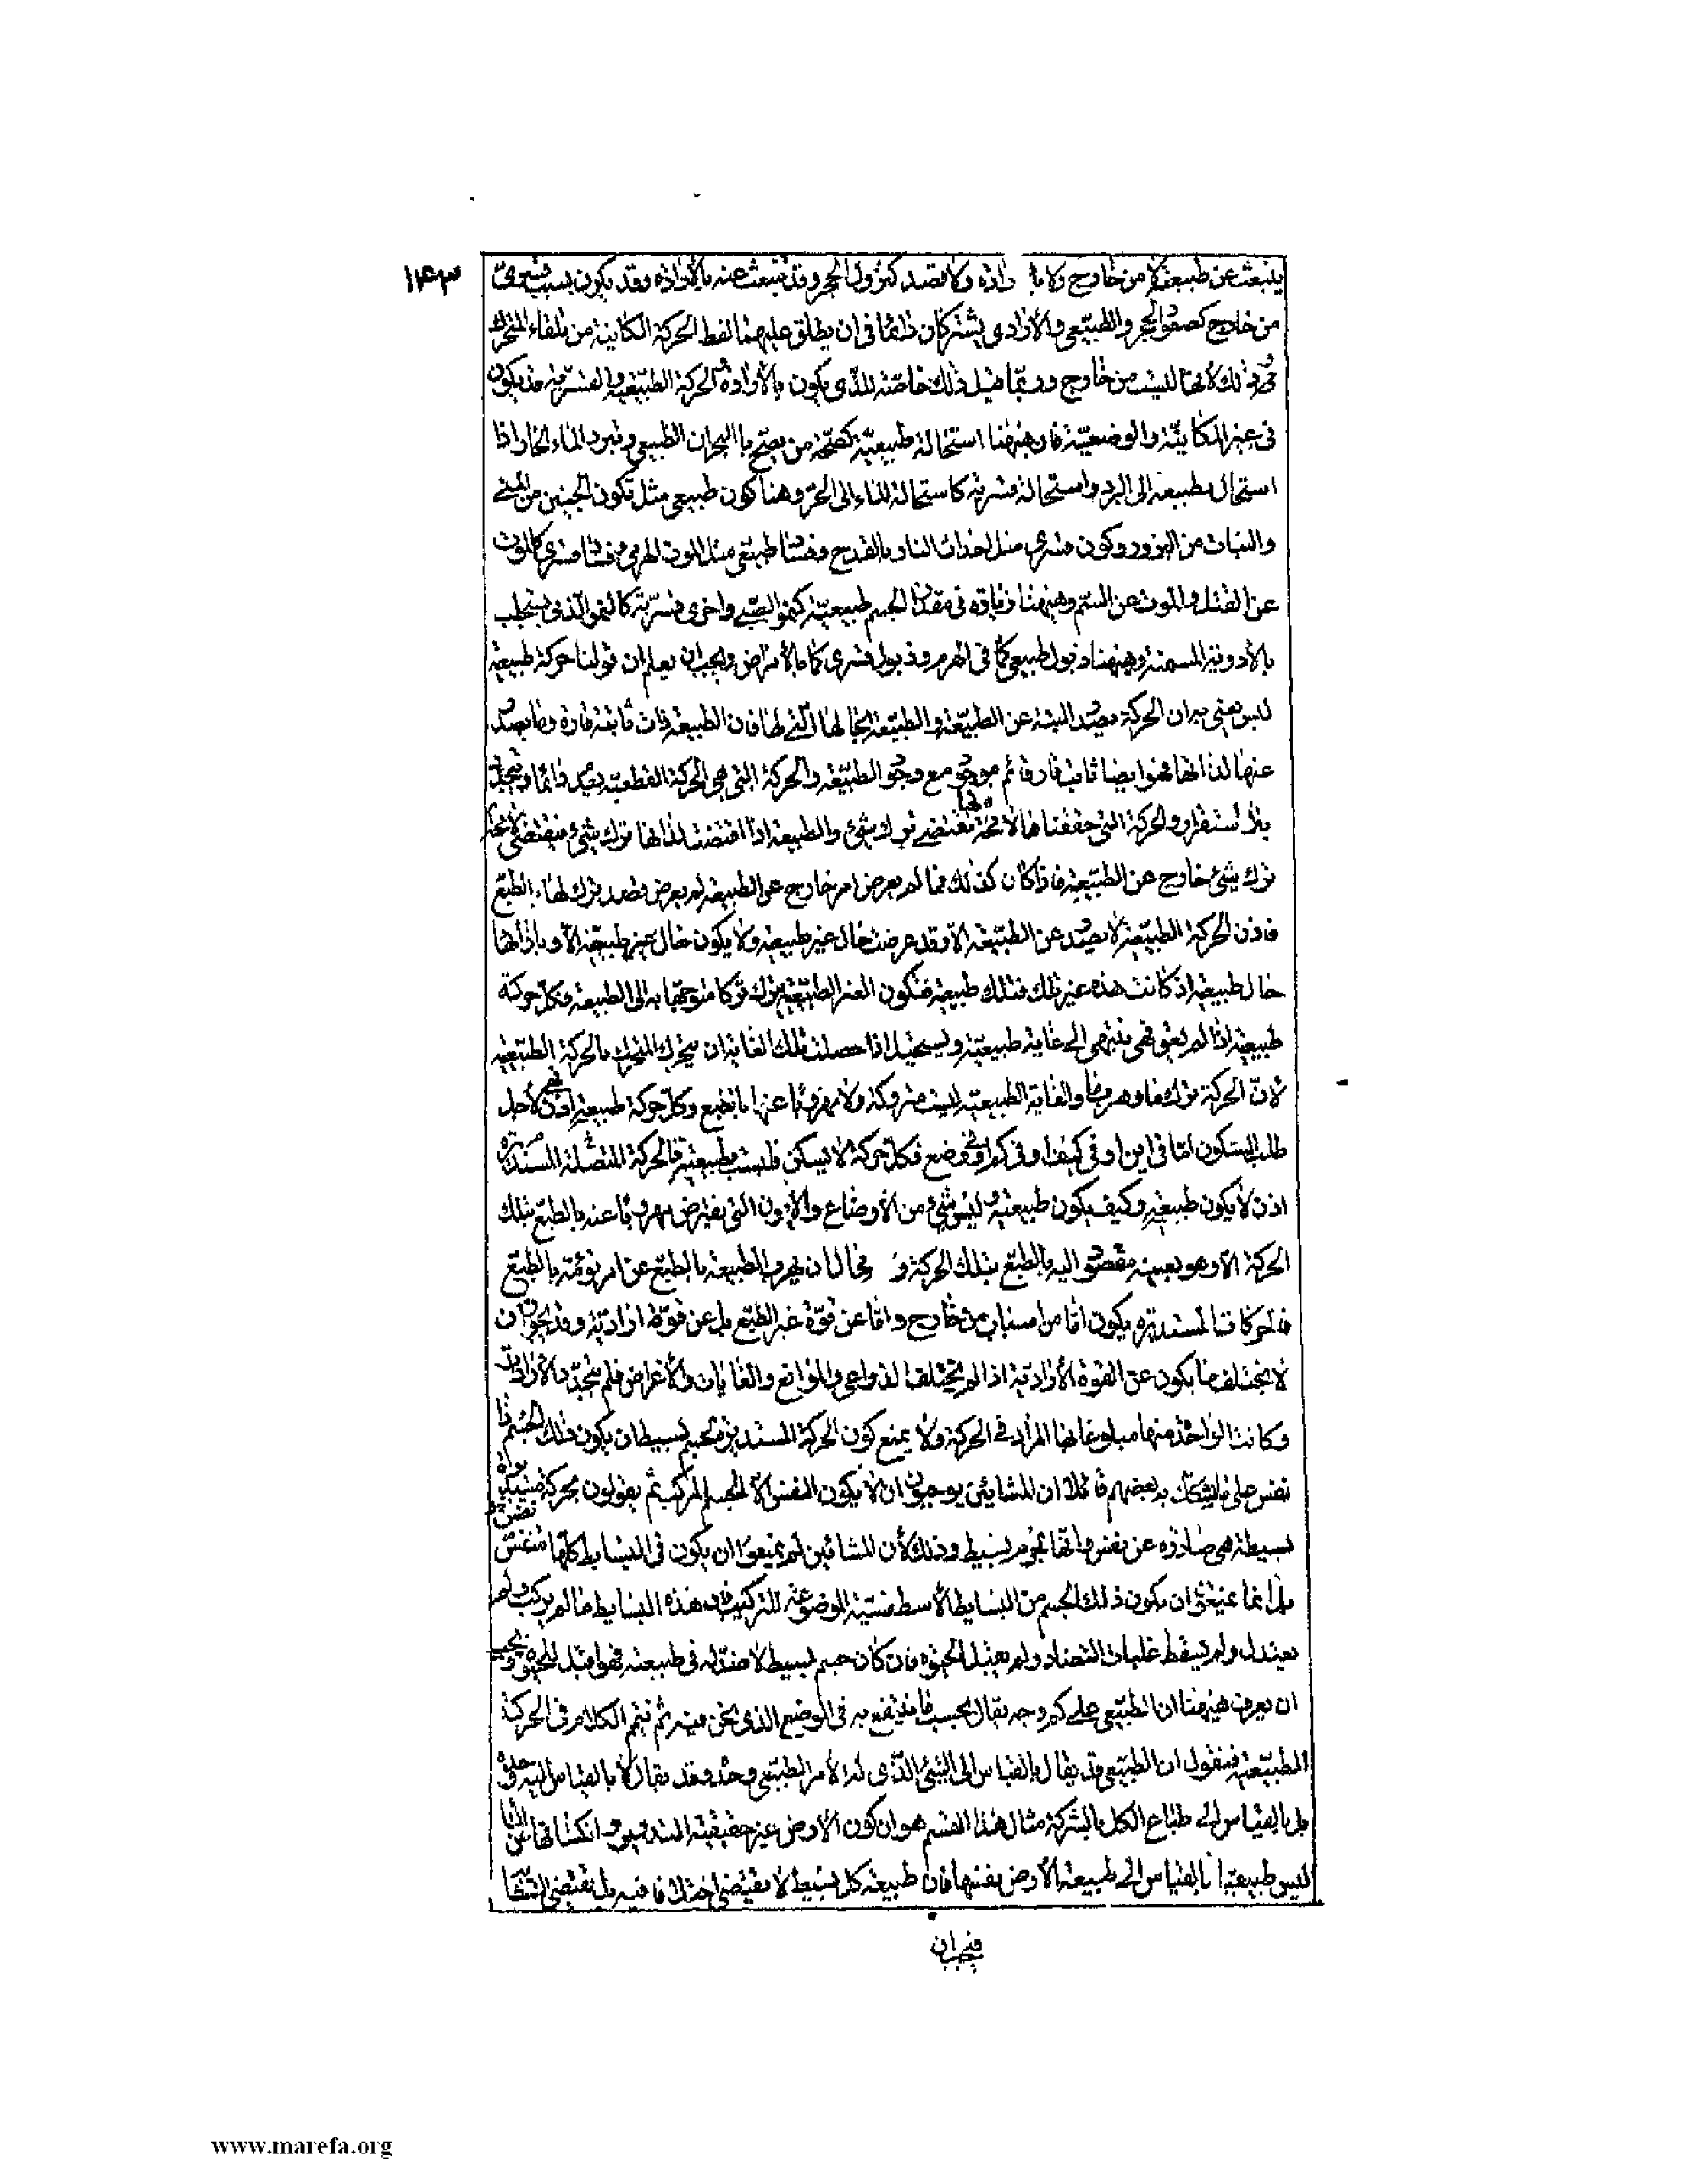 ١٤٣
ينبعث عن طبيعته لا من خارج ولا بارادة ولا قصد كنزول الحجر وقد تنبعث عنه بالارادة وقد يكون بسبب قسرى
من خارج كصعود الحجر والطبيعى والارادى يشتركان دائما فى ان يطلق عليهما لفظ الحركة الكائنة من تلقاء المتحرك
وذلك لانها ليست من خارج وربما قيل ذلك خاصة للذى يكون بالارادة والحركة الطبيعية والقسرية قد يكون
فى غير المكانية والوضعية فان ههنا استحالة طبيعية كصحة من يصح بالبحران الطبيعى وتبرد الماء الحار اذا
استحال بطبيعته الى البرد واستحالة قسرية كاستحالة الماء الى الحر وهنا كون طبيعى مثل تكون الجنين من المنى
والنبات من البزور وكون قسرى مثل احداث النار بالقدح وفسادا طبيعى مثل الموت الهرمى وفسادا قسرى كالموت
عن القتل والموت عن السم وههنا زيادة فى مقدار الجسم طبيعية كنمو الصبى واخرى قسرية كالنمو الذى يستجلب
بالادوية المسمنة وههنا ذبول طبيعى كما فى الهرم وذبول قسرى كما بالامراض ويجب ان يعلم ان قولنا حركة طبيعية
ليس يعنى به ان الحركة تصدر البتة عن الطبيعة والطبيعة بحالها التى لها فان الطبيعة ذات ثابتة قارة وما يصدر
عنها لذاتها فهو ايضا ثابت قار قائم موجود مع وجود الطبيعة والحركة التى هى الحركة القطعية تعدم دائما وتتجدد
بلا استقرار والحركة التى حققناها لا محالة تقتضى ترك شئ والطبيعة اذا اقتضت لذاتها ترك شئ فتقتضى لا محالة
ترك شئ خارج عن الطبيعة فاذا كان كذلك فما لم يعرض امر خارج عن الطبيعة لم يعرض قصد ترك لها بالطبع
فاذن الحركة الطبيعية لا تصدر عن الطبيعة الا وقد عرضت حال غير طبيعية ولا يكون حال غير طبيعية الا وبازائها
حال طبيعية اذ كانت هذه غير تلك فتلك طبيعية فيكون الغير الطبيعية يترك تركا متوجها به الى الطبيعية فكل حركة
طبيعية اذا لم تعق فهى تنتهى الى غاية طبيعية ويستحيل اذا حصلت تلك الغاية ان يتحرك المتحرك بالحركة الطبيعية
لان الحركة ترك ما وهرب ما والغاية الطبيعية ليست متروكة ولا مهروبا عنها بالطبع وكل حركة طبيعية اذن فهى لاجل
طلب السكون اما فى اين او فى كيف او فى كم او فى وضع فكل حركة لا تسكن فليست بطبيعية فالحركة المتصلة المستديرة
اذن لا يكون طبيعية وكيف يكون طبيعية وليس شئ من الاوضاع والايون التى يفترض مهروبا عنه بالطبع بتلك
الحركة الا وهو بعينه مقصود اليه بالطبع بتلك الحركة و محال ان يهرب الطبيعة بالطبع عن امر تؤمه بالطبع
فالحركات المستديرة يكون اما من اسباب من خارج واما عن قوة غير الطبع بل عن قوة ارادية وقد يجوز ان
لا يختلف ما يكون عن القوة الارادية اذا لم يختلف الدواعى والموانع والغايات والاغراض فلم يتجدد الارادات
وكانت الواحدة منها مبلوغا لها المراد فى الحركة ولا يمنع كون الحركة المستديرة لجسم بسيط ان يكون ذلك الجسم ذا
نفس على ما يتشكك به بعضهم قائلا ان المشائين يوجبون ان لا يكون النفس الا للجسم المركب ثم يقولون بحركة مستديرة
بسيطة هى صادرة عن نفس مع انها لجرم بسيط وذلك لان المشائين لم يمنعوا ان يكون فى البسايط كلها متنفس
بل انما يمنعون ان يكون ذلك الجسم من البسايط الاسطقسية الموضوعة للتركيب فان هذه البسايط ما لم يركب ولم
يعتدل ولم يسقط غلبات التضاد ولم يقبل الحيوة فان كان جسم بسيط لا ضد له فى طبيعته فهو اقبل للحيوة ويجب
ان نعرف ههنا ان الطبيعى على كم وجه يقال بحسب ما ننتفع به فى الوضع الذى نحن فيه ثم نتمم الكلام فى الحركة
الطبيعية فنقول ان الطبيعى قد يقال بالقياس الى الشئ الذى له الامر الطبيعى وحده وقد يقال لا بالقياس اليه وحده
بل بالقياس الى طباع الكل بالشركة مثال هذا القسم هو ان كون الارض غير حقيقية التدوير وانكشافها عن الماء
ليس طبيعيا بالقياس الى طبيعة الارض نفسها فان طبيعة كل بسيط لا تقتضى اختلافا فيه بل تقتضى التشابه
فيجب ان
www.marefa.org